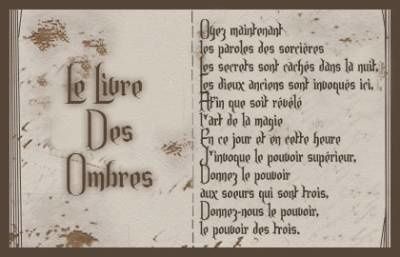 Le Livre
Des
Ombres
Oyez maintenant
les paroles des sorcières
Les secrets sont cachés dans la nuit,
Les dieux anciens sont invoqués ici,
Afin que soit révélé
l'art de la magie
En ce jour et en cette heure
J'invoque le pouvoir supérieur,
Donnez le pouvoir
aux soeurs qui sont trois,
Donnez-nous le pouvoir,
le pouvoir des trois.